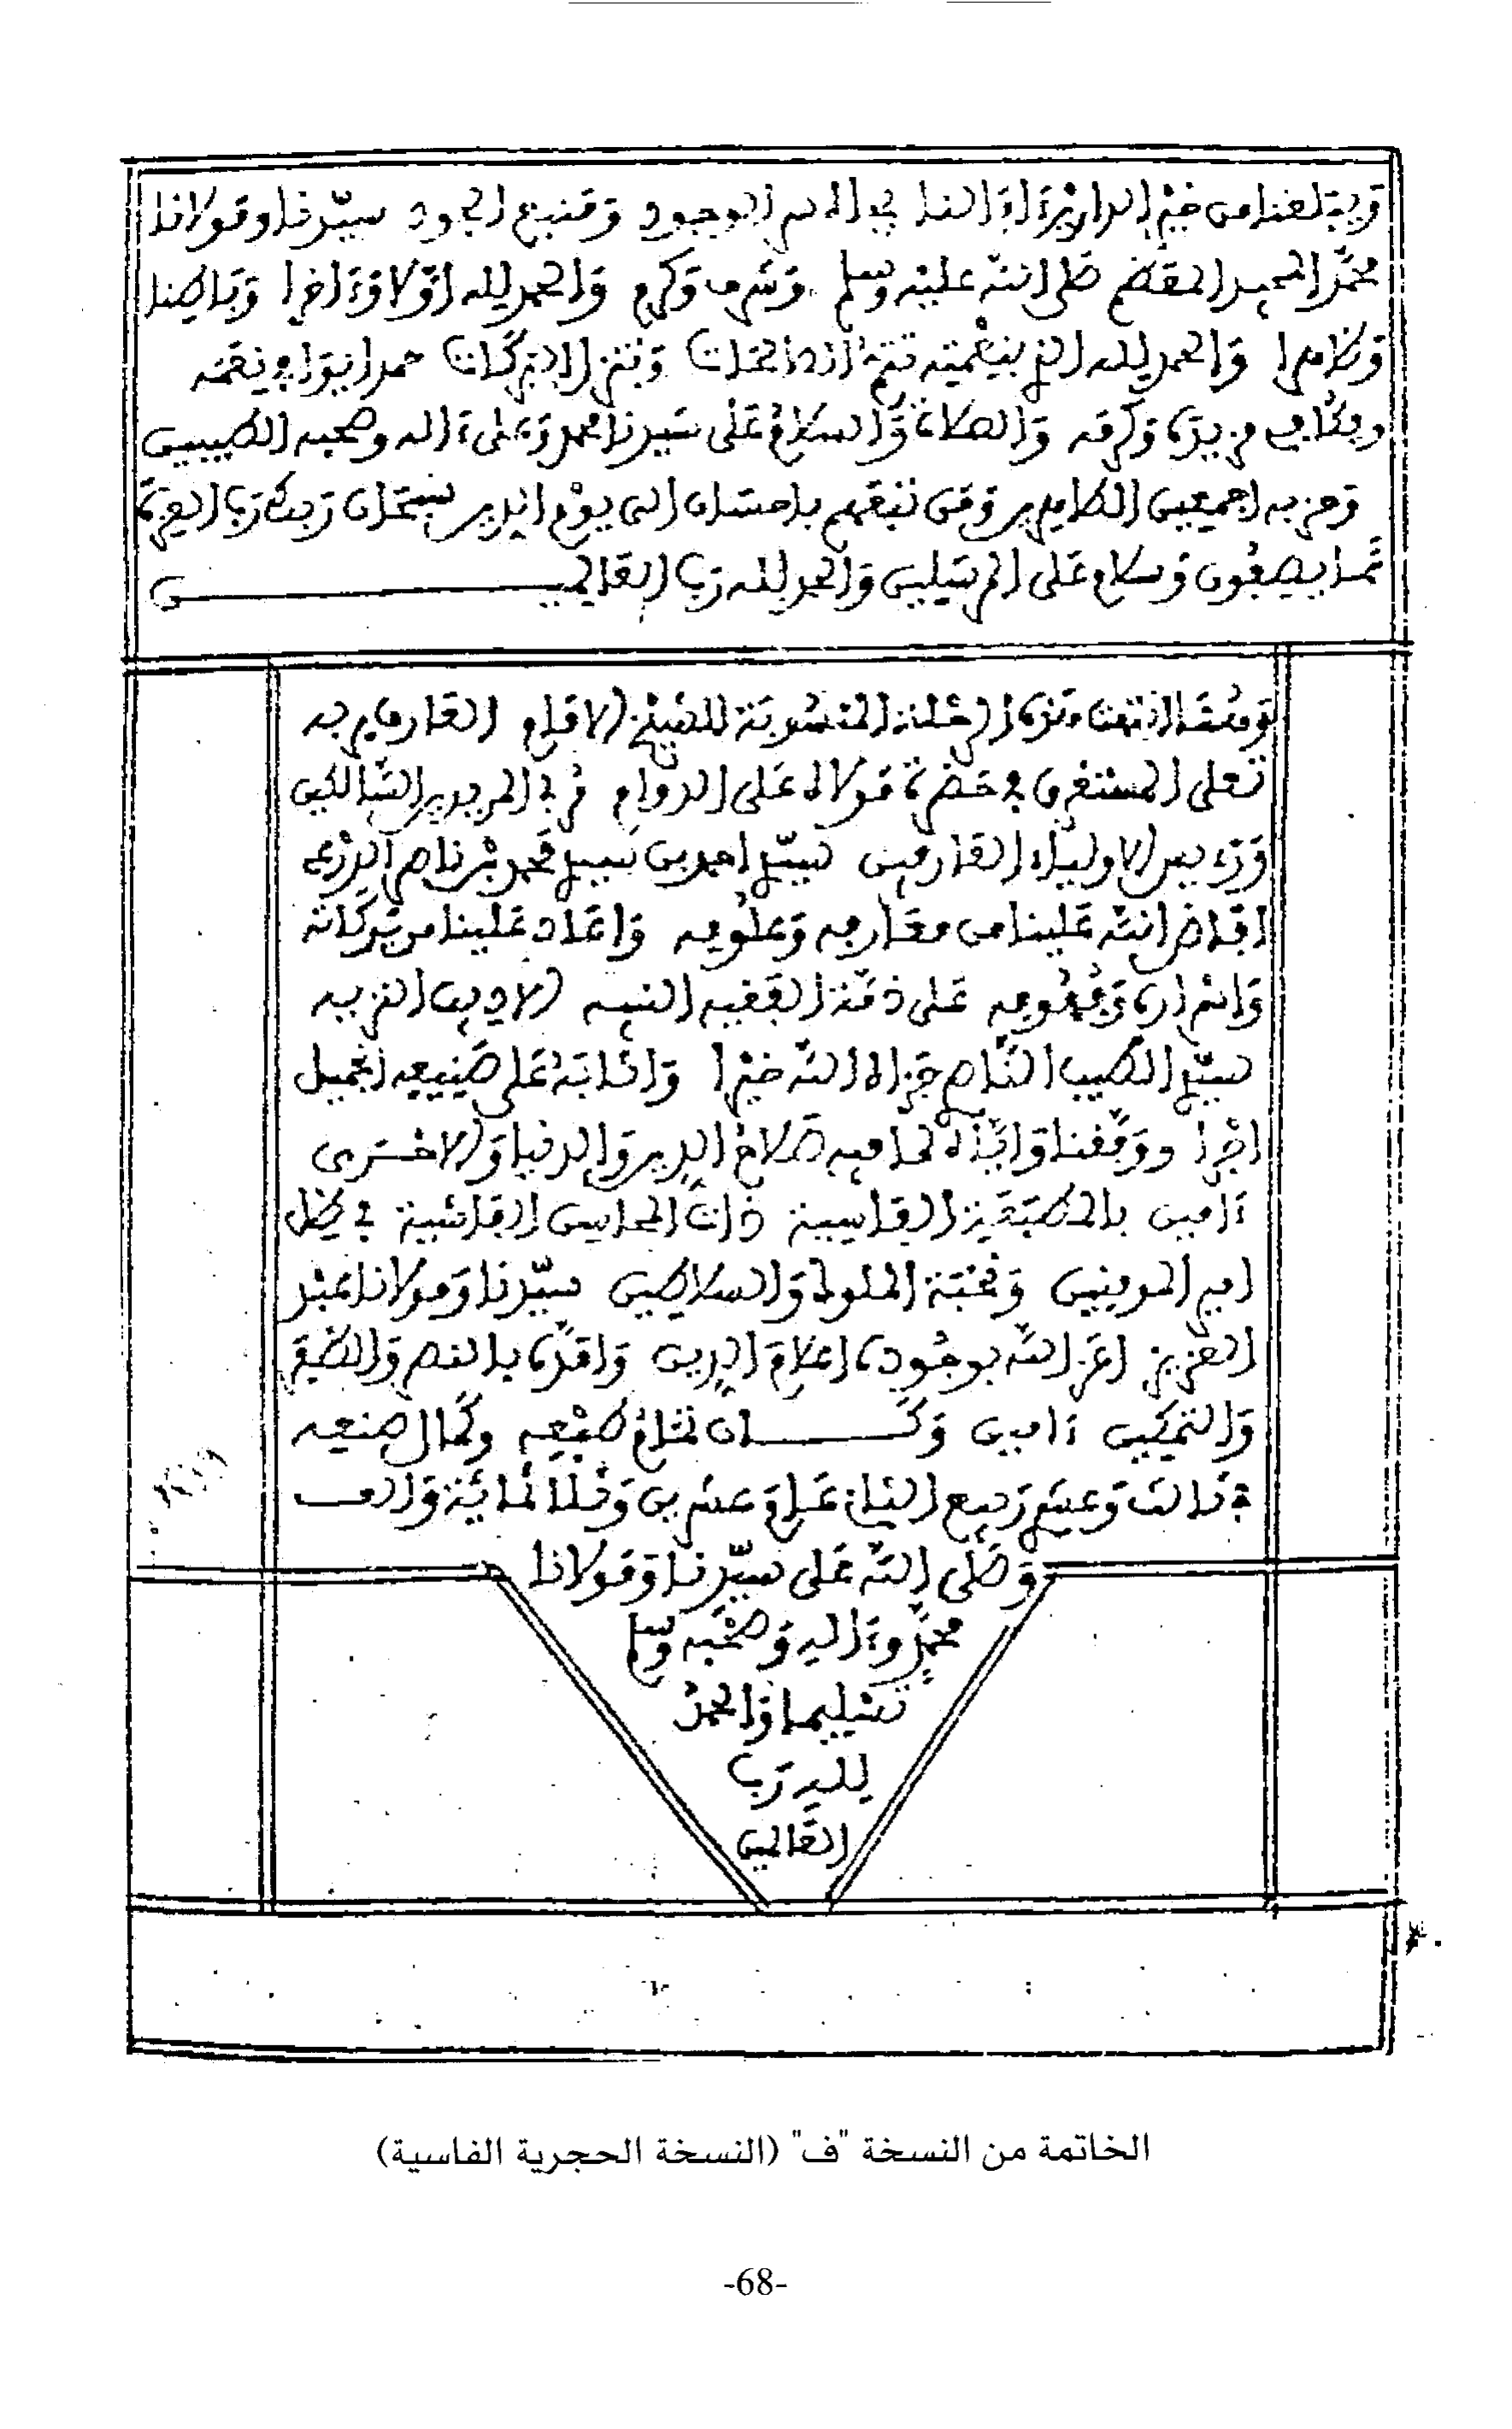 ويبلغنا من خير الدارين ءامالنا بجاه سر الوجود ومنبع الجود سيدنا ومولانا
محمد الممجد المعظم صلى الله عليه وسلم وشرف وكرم والحمد لله أولا وءاخرا وباطنا
وظاهرا والحمد لله الذي بنعمته تتم الصالحات وتتنزل البركات حمدا يوافي نعمه
ويكافي مزيده وكرمه والصلاة والسلام على سيدنا محمد وعلى ءاله وصحبه الطيبين
وحزبه اجمعين الطاهرين ومن تبعهم باحسان الى يوم الدين سبحان ربك رب العزة
عما يصفون وسلام على المرسلين والحمد لله رب العالمين
وهنا انتهت هذه الرحلة المنسوبة للشيخ الامام العارف بربه
تعلى المستغرق في حضرة مولاه على الدوام مربي المريدين السالكين
ورءيس الاولياء العارفين سيدي احمد بن سيدي محمد بن ناصر الدرعي
افاض الله علينا من معارفه وعلومه واعاد علينا من بركاته
واسراره وفهومه على ذمة الفقيه النبيه الاديب النزيه
سيدي الطيب جزاه الله خيرا واثابه على صنيعه الجميل
اجرا ووفقنا واياه لما فيه صلاح الدين والدنيا والاخرى
ءامين بالمطبعة الفاسية ذات المحاسن الفاشية في ظل
امير المومنين ونخبة الملوك والسلاطين سيدنا ومولانا عبد
العزيز اعز الله بوجوده اعلام الدين وامده بالنصر والظفر
والتمكين ءامين وكان تمام طبعه وكمال صنعه
في ثالث وعشري ربيع الثاني عام عشرين وثلاثمائة والف
وصلى الله على سيدنا ومولانا
محمد وءاله وصحبه وسلم
تسليما والحمد
لله رب
العالمين
الخاتمة من النسخة "ف" (النسخة الحجرية الفاسية)
-68-